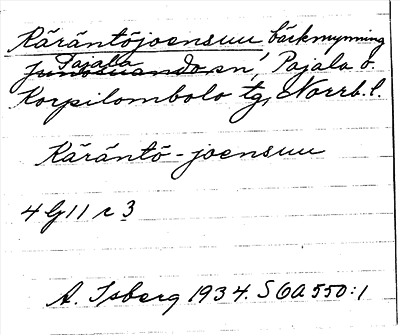 Käräntöjoensuu, bäckmynning
Pajala
Junosuando sn, Pajala o.
Korpilombolo tg, Norrb. l.
Käräntö-joensuu
4 G 11 c 3
A. Isberg 1934. SOA 550:1